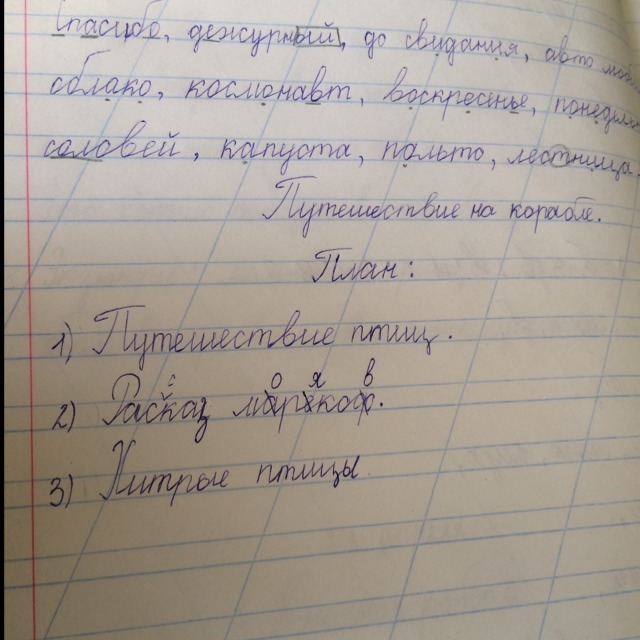 Спасибо, дежурный, до свидания, авто
облако, космонавт, воскресенье,
соловей, капуста, пальто, лестница.
Путешествие на корабле.
План:
1) Путешествие птиц.
с о я в
2) Расказ маркоф.
3) Хитрые птицы